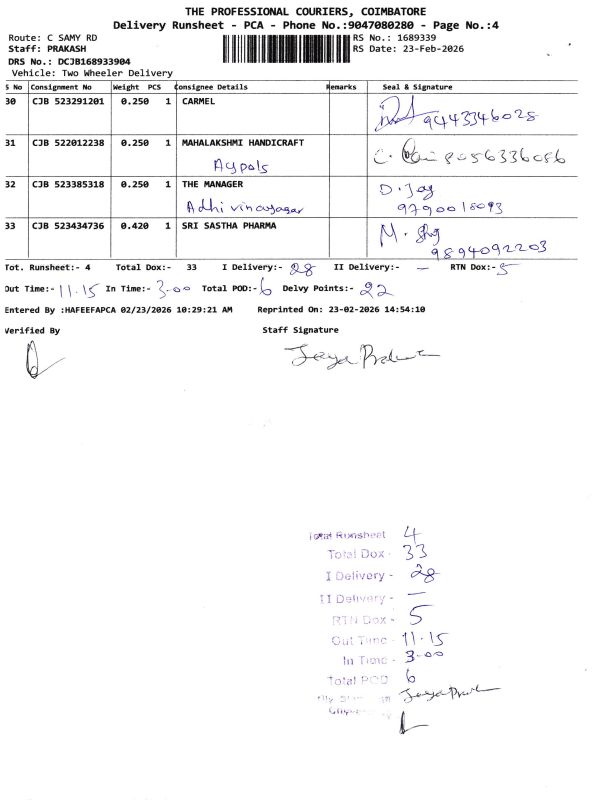 THE PROFESSIONAL COURIERS, COIMBATORE
Delivery Runsheet - PCA - Phone No.:9047080280 - Page No.:4
Route: C SAMY RD RS No.: 1689339
Staff: PRAKASH RS Date: 23-Feb-2026
DRS No.: DCJB168933904
Vehicle: Two Wheeler Delivery
S No Consignment No Weight PCS Consignee Details Remarks Seal & Signature
30 CJB 523291201 0.250 1 CARMEL
9443346025
31 CJB 522012238 0.250 1 MAHALAKSHMI HANDICRAFT
8056336086
32 CJB 523385318 0.250 1 THE MANAGER D. Jay
Adhi vinayagar 9790018093
33 CJB 523434736 0.420 1 SRI SASTHA PHARMA M.
9894092203
Tot. Runsheet:- 4 Total Dox:- 33 I Delivery:- 28 II Delivery:- — RTN Dox:- 5
Out Time:- 11.15 In Time:- 3.00 Total POD:- 6 Delvy Points:- 22
Entered By :HAFEEFAPCA 02/23/2026 10:29:21 AM Reprinted On: 23-02-2026 14:54:10
Verified By Staff Signature
Total Runsheet 4
Total Dox - 33
I Delivery - 28
II Delivery - —
RTN Dox - 5
Out Time - 11.15
In Time - 3.00
Total POD 6